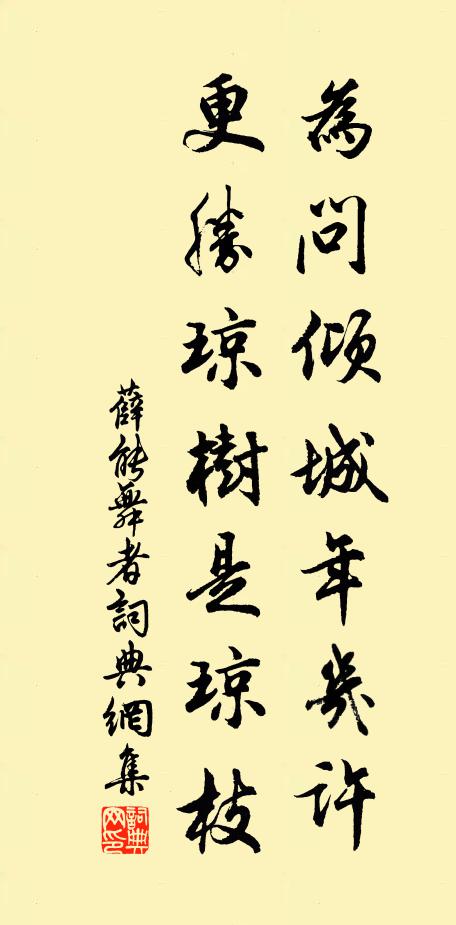 為問傾城年幾許
更勝瓊樹是瓊枝
薛能舞者詞典網集
詞典網印